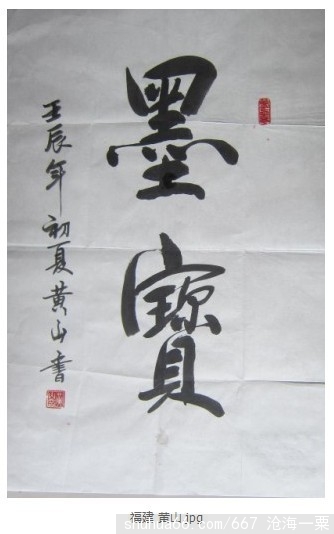 墨寶
壬辰年初夏黄山書
福建 黄山.jpg
shanda60.com/667 沧海一粟